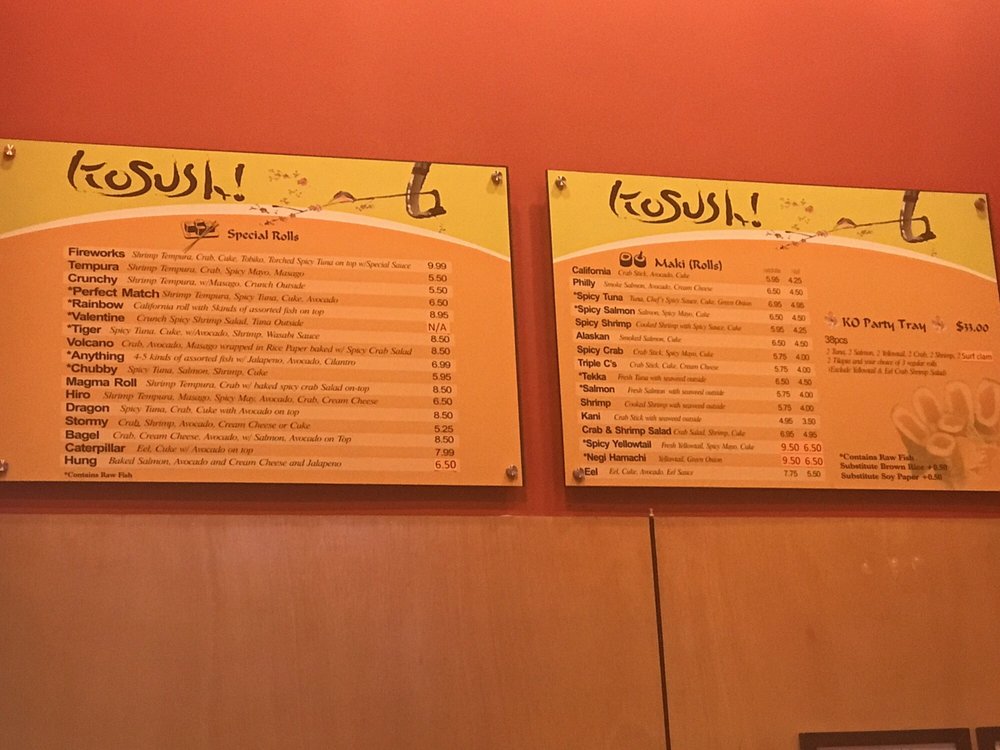 KOSUSH!
Special Rolls
Fireworks Shrimp Tempura, Crab, Cuke, Tobiko, Torched Spicy Tuna on top w/Special Sauce 9.99
Tempura Shrimp Tempura, Crab, Spicy Mayo, Masago 5.50
Crunchy Shrimp Tempura, w/Masago, Crunch Outside 5.50
*Perfect Match Shrimp Tempura, Spicy Tuna, Cuke, Avocado 6.50
*Rainbow California roll with 5kinds of assorted fish on top 8.95
*Valentine Crunch Spicy Shrimp Salad, Tuna Outside N/A
*Tiger Spicy Tuna, Cuke, w/Avocado, Shrimp, Wasabi Sauce 8.50
Volcano Crab, Avocado, Masago wrapped in Rice Paper baked w/ Spicy Crab Salad 8.50
*Anything 4-5 kinds of assorted fish w/ Jalapeno, Avocado, Cilantro 6.99
*Chubby Spicy Tuna, Salmon, Shrimp, Cuke 5.95
Magma Roll Shrimp Tempura, Crab w/ baked spicy crab Salad on-top 8.50
Hiro Shrimp Tempura, Masago, Spicy May, Avocado, Crab, Cream Cheese 6.50
Dragon Spicy Tuna, Crab, Cuke with Avocado on top 8.50
Stormy Crab, Shrimp, Avocado, Cream Cheese or Cuke 5.25
Bagel Crab, Cream Cheese, Avocado, w/ Salmon, Avocado on Top 8.50
Caterpillar Eel, Cuke w/ Avocado on top 7.99
Hung Baked Salmon, Avocado and Cream Cheese and Jalapeno 6.50
*Contains Raw Fish
KOSUSH!
Maki (Rolls)
California Crab Stick, Avocado, Cuke 5.95 4.25
Philly Smoke Salmon, Avocado, Cream Cheese 6.50 4.50
*Spicy Tuna Tuna, Chef's Spicy Sauce, Cuke, Green Onion 6.95 4.95
*Spicy Salmon Salmon, Spicy Mayo, Cuke 6.50 4.50
Spicy Shrimp Cooked Shrimp with Spicy Sauce, Cuke 5.95 4.25
Alaskan Smoked Salmon, Cuke 6.50 4.50
Spicy Crab Crab Stick, Spicy Mayo, Cuke 5.75 4.00
Triple C's Crab Stick, Cuke, Cream Cheese 5.75 4.00
*Tekka Fresh Tuna with seaweed outside 6.50 4.50
*Salmon Fresh Salmon with seaweed outside 5.75 4.00
Shrimp Cooked Shrimp with seaweed outside 5.75 4.00
Kani Crab Stick with seaweed outside 4.95 3.50
Crab & Shrimp Salad Crab Salad, Shrimp, Cuke 6.95 4.95
*Spicy Yellowtail Fresh Yellowtail, Spicy Mayo, Cuke 9.50 6.50
*Negi Hamachi Yellowtail, Green Onion 9.50 6.50
Eel Eel, Cuke, Avocado, Eel Sauce 7.75 5.50
KO Party Tray $33.00
38pcs
2 Tuna, 2 Salmon, 2 Yellowtail, 2 Crab, 2 Shrimp, 2 Surf clam
2 Tilapia and your choice of 3 regular rolls
(Exclude Yellowtail & Eel Crab Shrimp Salad)
*Contains Raw Fish
Substitute Brown Rice +0.50
Substitute Soy Paper +0.50